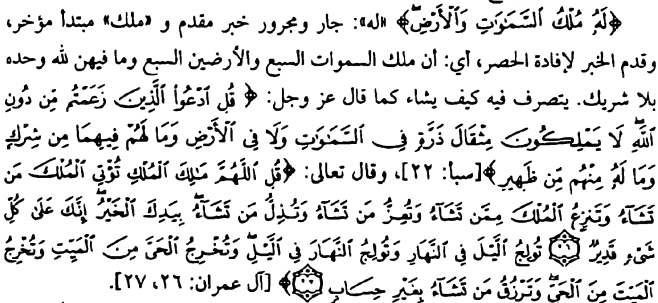 ﴿لَهُ مُلْكُ السَّمَوَاتِ وَالْأَرْضِ﴾ «له»: جار ومجرور خبر مقدم و «ملك» مبتدأ مؤخر،
وقدم الخبر لإفادة الحصر، أي: أن ملك السموات السبع والأرضين السبع وما فيهن لله وحده
بلا شريك. يتصرف فيه كيف يشاء كما قال عز وجل: ﴿قُلِ ادْعُوا الَّذِينَ زَعَمْتُم مِّن دُونِ
اللَّهِ لَا يَمْلِكُونَ مِثْقَالَ ذَرَّةٍ فِي السَّمَوَاتِ وَلَا فِي الْأَرْضِ وَمَا لَهُمْ فِيهِمَا مِن شِرْكٍ
وَمَا لَهُ مِنْهُم مِّن ظَهِيرٍ﴾ [سبأ: ٢٢]، وقال تعالى: ﴿قُلِ اللَّهُمَّ مَالِكَ الْمُلْكِ تُؤْتِي الْمُلْكَ مَن
تَشَاءُ وَتَنزِعُ الْمُلْكَ مِمَّن تَشَاءُ وَتُعِزُّ مَن تَشَاءُ وَتُذِلُّ مَن تَشَاءُ بِيَدِكَ الْخَيْرُ إِنَّكَ عَلَى كُلِّ
شَيْءٍ قَدِيرٌ ۝٢٦ تُولِجُ اللَّيْلَ فِي النَّهَارِ وَتُولِجُ النَّهَارَ فِي اللَّيْلِ وَتُخْرِجُ الْحَيَّ مِنَ الْمَيِّتِ وَتُخْرِجُ
الْمَيِّتَ مِنَ الْحَيِّ وَتَرْزُقُ مَن تَشَاءُ بِغَيْرِ حِسَابٍ ۝٢٧﴾ [آل عمران: ٢٦، ٢٧].